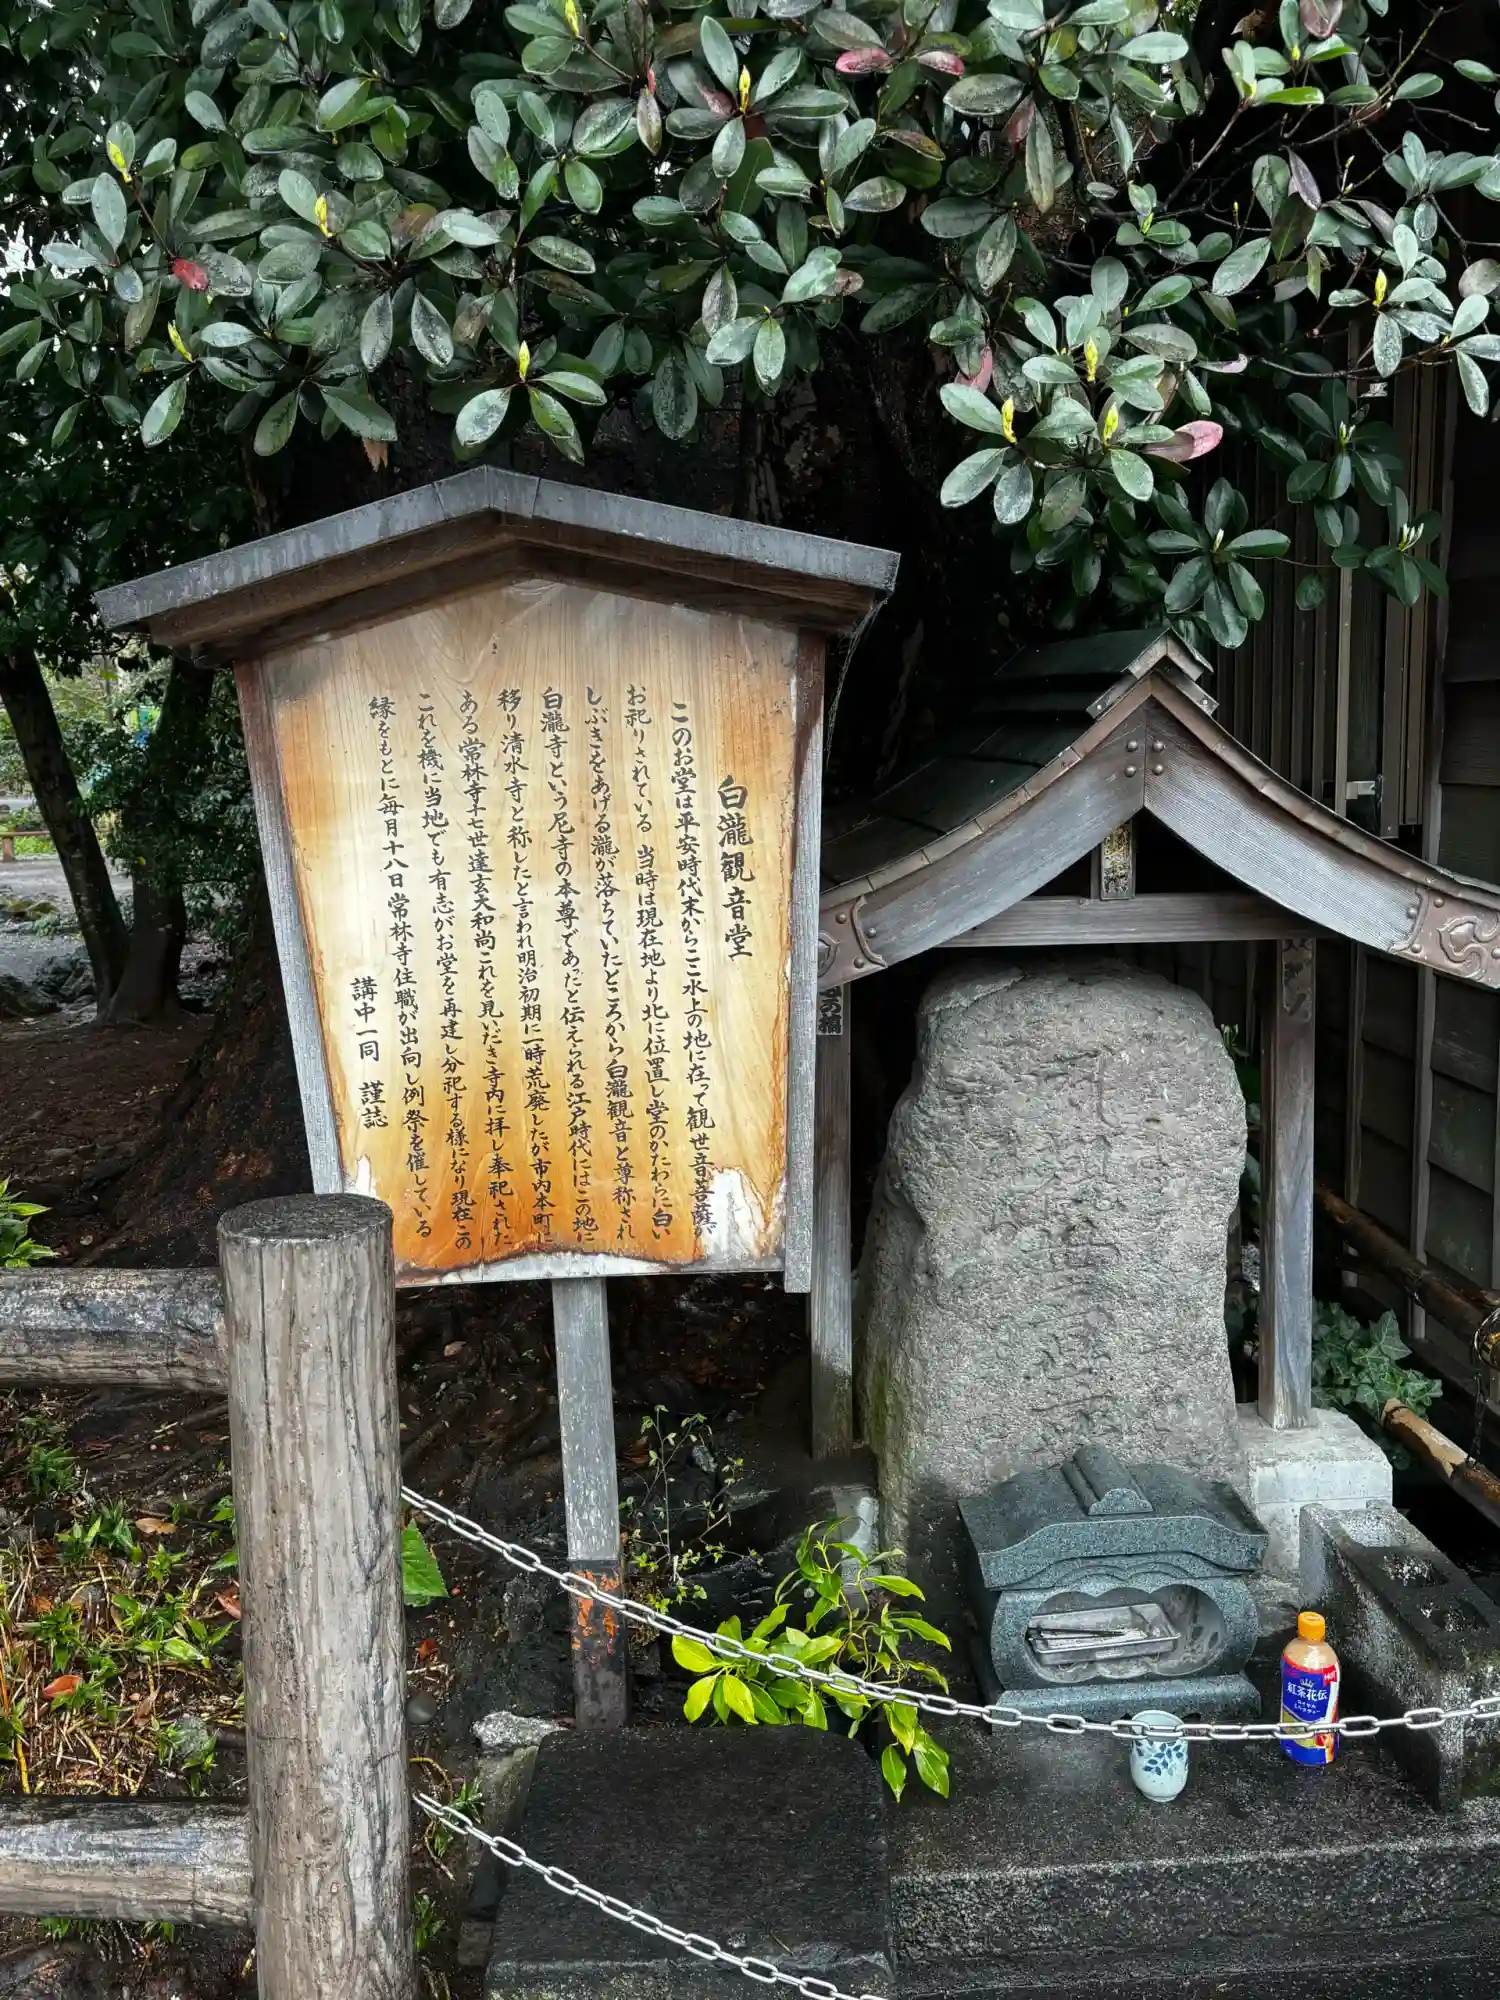 白瀧観音堂
このお堂は平安時代末からここ水上の地に在って観世音菩薩が
お祀りされている 当時は現在地より北に位置し堂のかたわらに白い
しぶきをあげる瀧が落ちていたところから白瀧観音と尊称され
白瀧寺という尼寺の本尊であったと伝えられる江戸時代にはこの地に
移り清水寺と称したと言われ明治初期に一時荒廃したが市内本町に
ある常林寺十七世達玄大和尚これを見いだき寺内に拝し奉祀された
これを機に当地でも有志がお堂を再建し分祀する様になり現在この
縁をもとに毎月十八日常林寺住職が出向し例祭を催している
講中一同 謹誌
HOT
紅茶花伝
ロイヤル